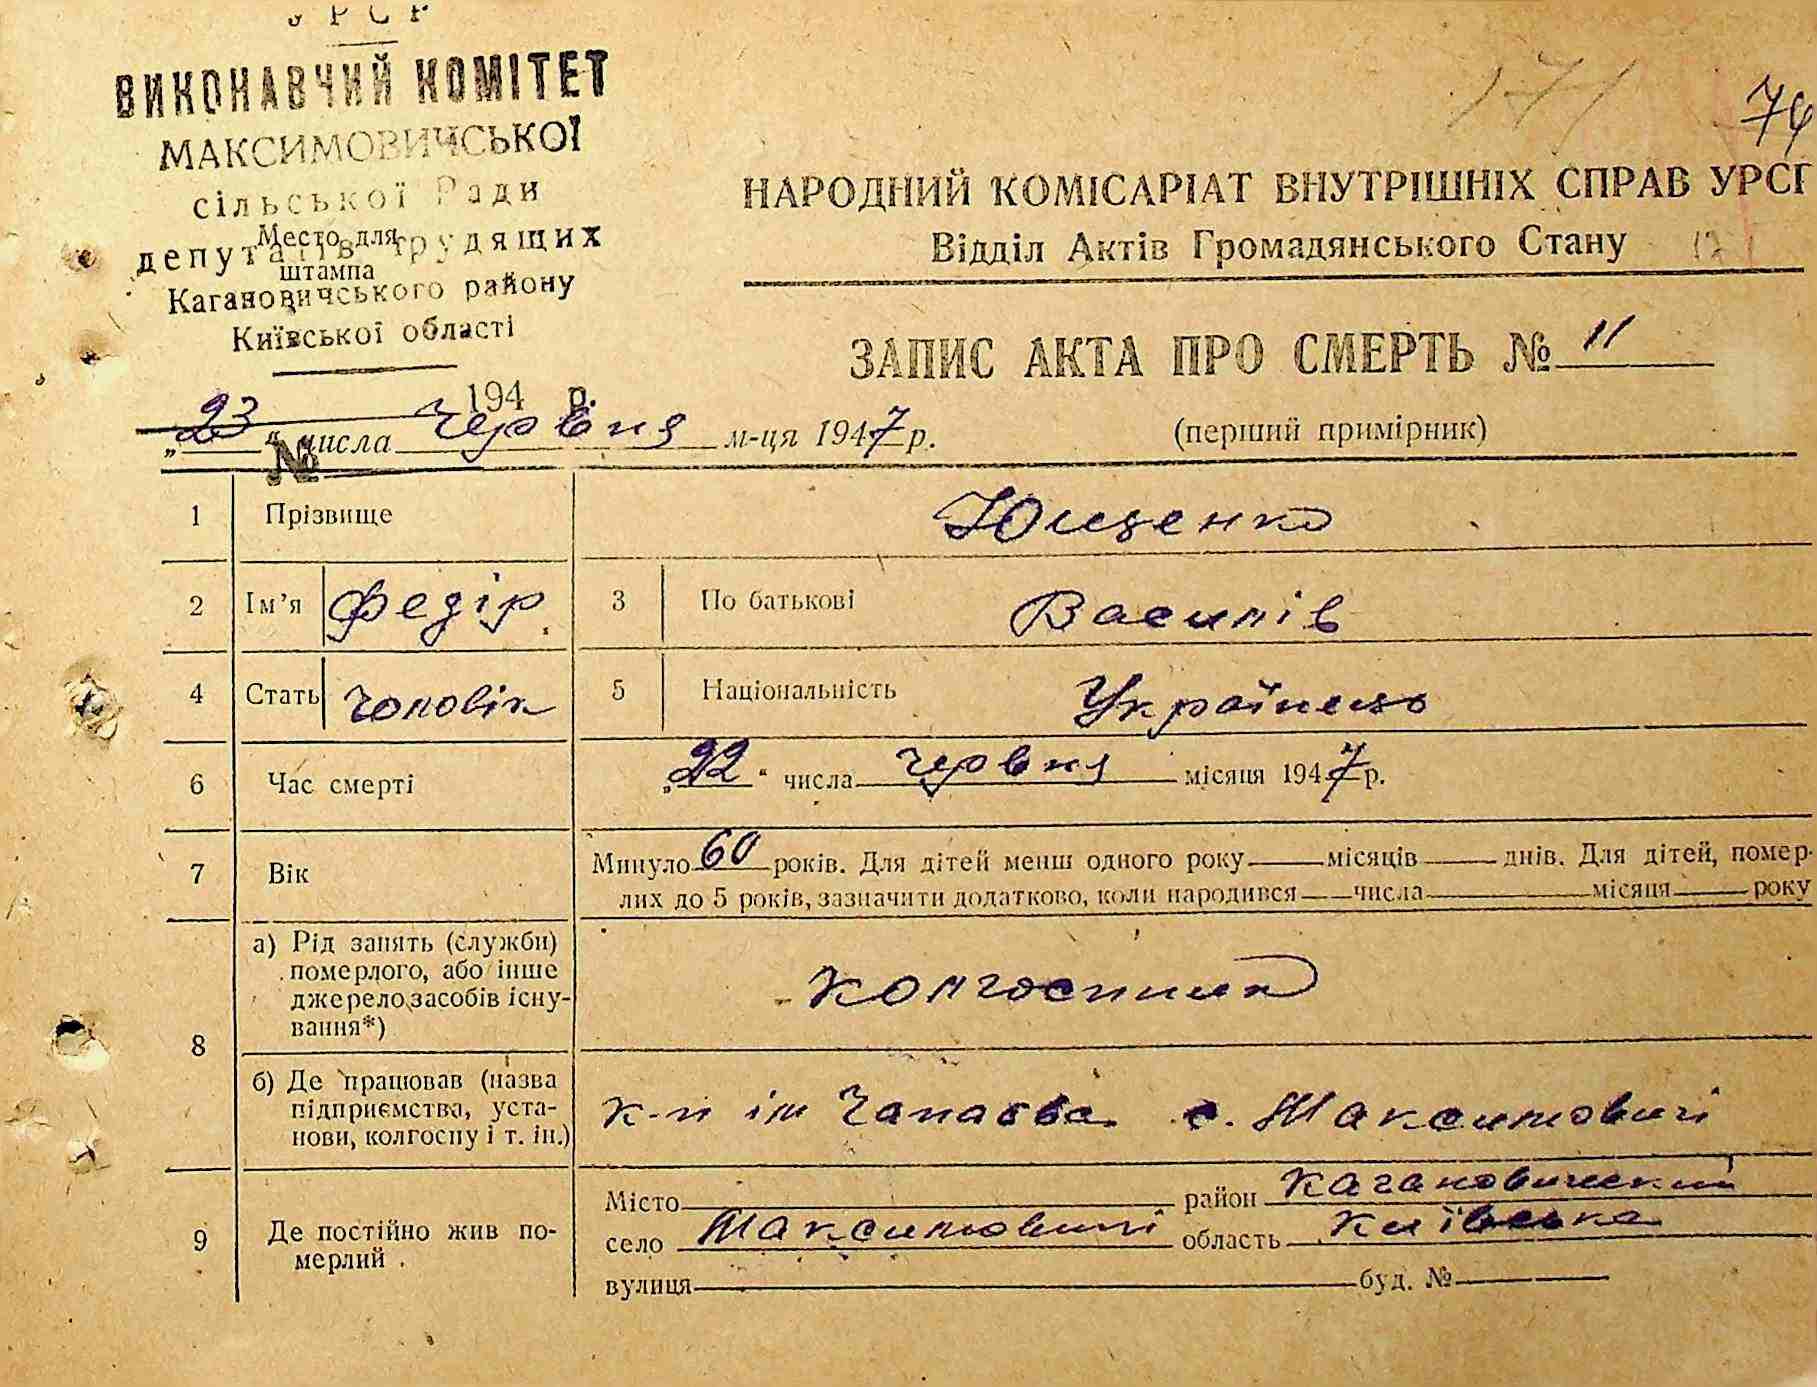 УРСР
ВИКОНАВЧИЙ КОМІТЕТ
МАКСИМОВИЧСЬКОЇ
сільської Ради
депутатів трудящих
Место для
штампа
Кагановичського району
Київської області
194 р.
№
171
74
НАРОДНИЙ КОМІСАРІАТ ВНУТРІШНІХ СПРАВ УРСР
Відділ Актів Громадянського Стану
ЗАПИС АКТА ПРО СМЕРТЬ № 11
„23“ числа червня м-ця 1947 р.
(перший примірник)
1 Прізвище Ющенко
2 Ім'я Федір 3 По батькові Василів
4 Стать чоловік 5 Національність Українець
6 Час смерті „22“ числа червня місяця 1947 р.
7 Вік Минуло 60 років. Для дітей менш одного року місяців днів. Для дітей, помер-
лих до 5 років, зазначити додатково, коли народився числа місяця року
8 а) Рід занять (служби)
померлого, або інше
джерело засобів існу-
вання*)
колгоспник
б) Де працював (назва
підприємства, уста-
нови, колгоспу і т. ін.)
к-п ім Чапаєва с. Максимовичі
9 Де постійно жив по-
мерлий
Місто район Кагановический
село Максимовичі область Київська
вулиця буд. №